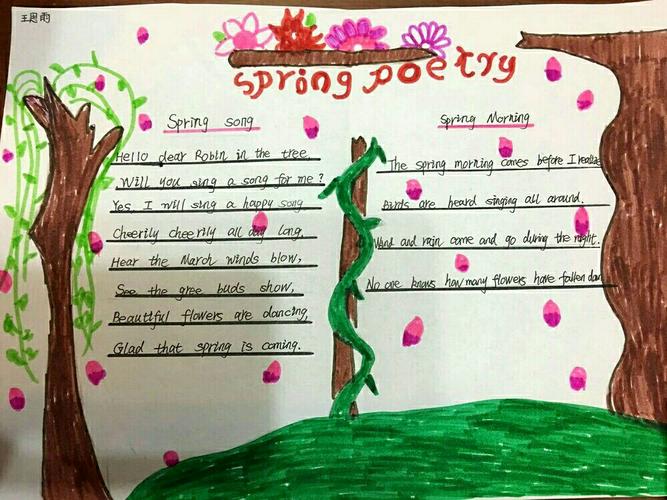 王思雨
Spring poetry
Spring song
Hello dear Robin in the tree.
Will you sing a song for me?
Yes. I will sing a happy song
Cheerily cheerily all day long,
Hear the March winds blow,
See the gree buds show,
Beautiful flowers are dancing,
Glad that spring is coming.
Spring Morning
The spring morning comes before I realize
Birds are heard singing all around.
Wind and rain come and go during the night.
No one knows how many flowers have fallen down